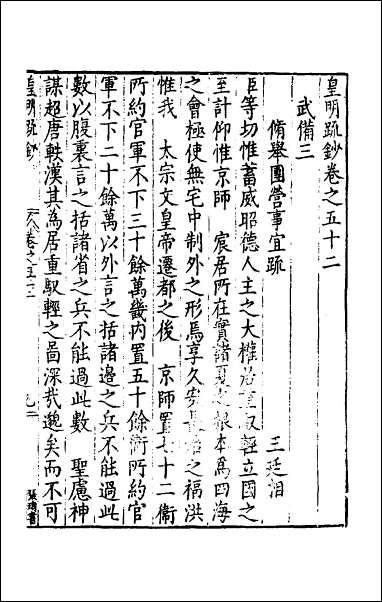 皇明疏鈔卷之五十二
武備三
脩舉團營事宜疏
王廷相
臣等切惟蓄威昭德人主之大權居重馭輕立國之
至計仰惟京師 宸居所在實諸夏之根本爲四海
之會極使無宅中制外之形焉享久安長治之福洪
惟我 太宗文皇帝遷都之後 京師置七十二衛
所約官軍不下三十餘萬畿内置五十餘衛所約官
軍不下二十餘萬以外言之括諸邊之兵不能過此
數以腹裏言之括諸省之兵不能過此數 聖慮神
謀超唐軼漢其為居重馭輕之啚深哉邈矣而不可
皇明疏鈔
卷之五十二